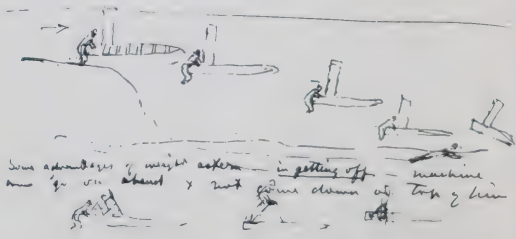 Some advantages of weight astern — in getting off — machine
may go on ahead & not come down on top of him